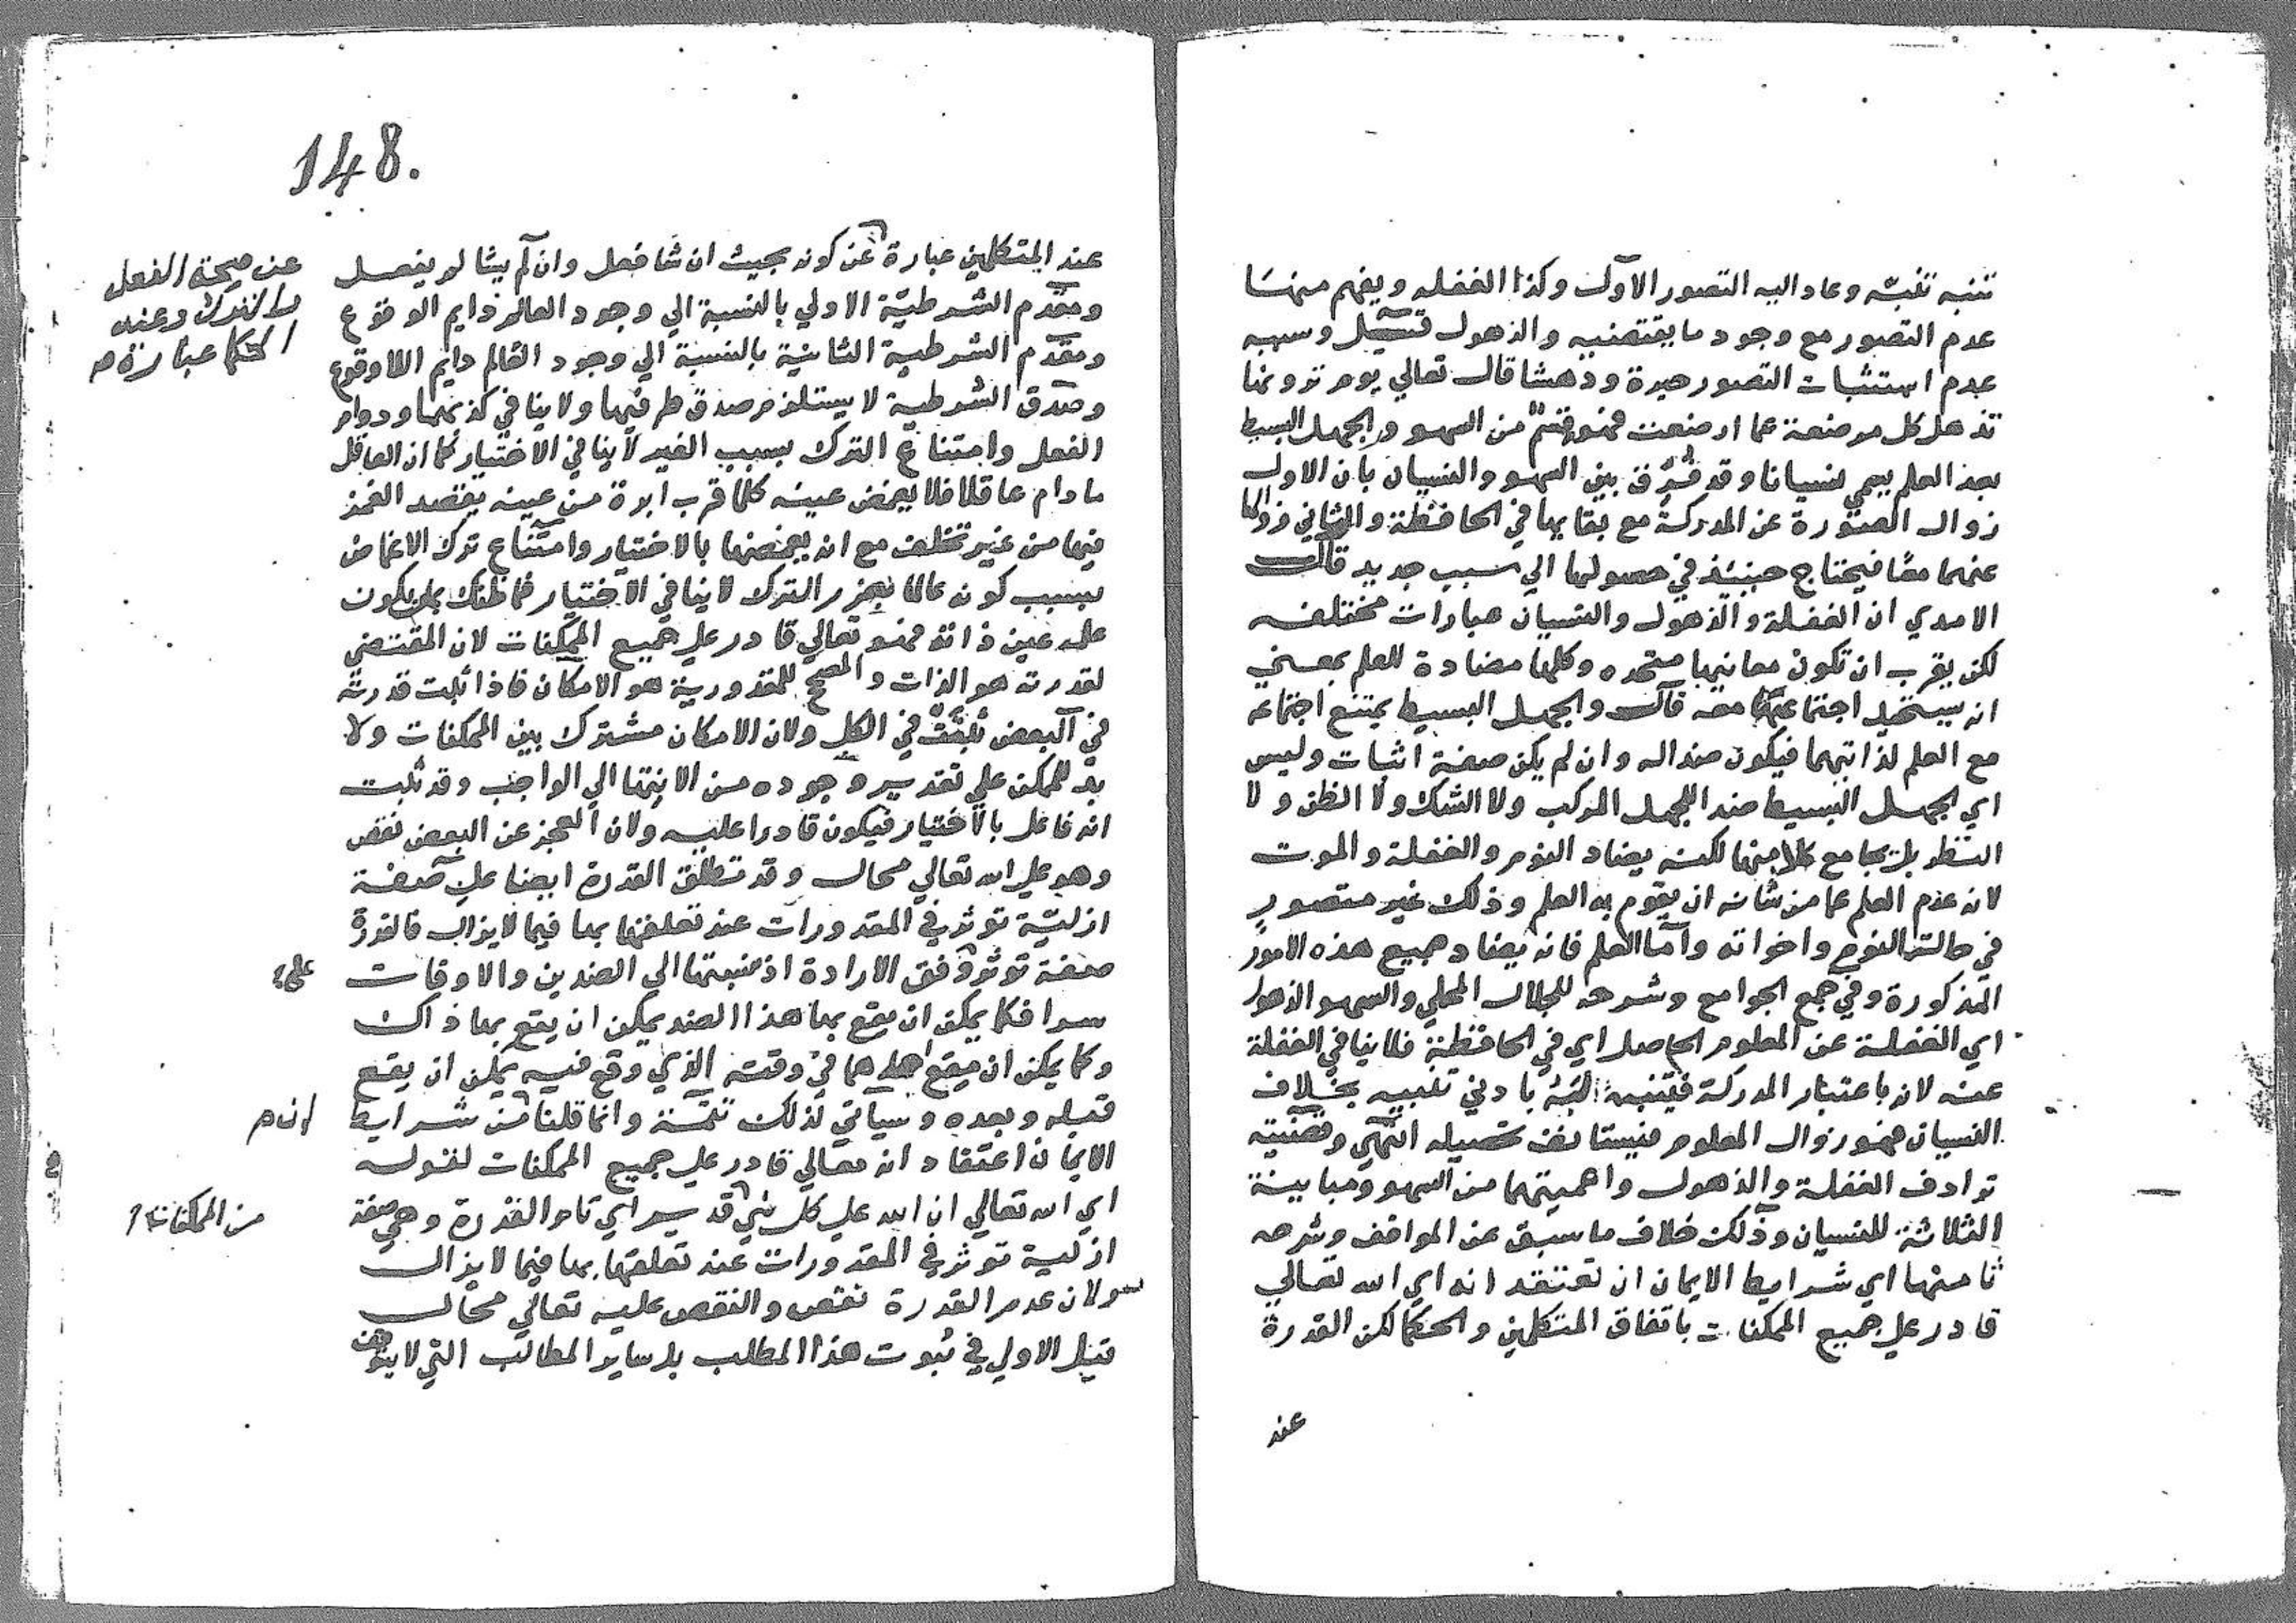 تنبه تنبّه وعاد اليه التصور الاول وكذا الغفله ويفهم منها
عدم التصور مع وجود ما يقتضيه والذهول قيل وسببه
عدم استثبات التصور حيرة ودهشا قال تعالي يوم ترونها
تذهل كل مرضعة عما ارضعت فهو قسم من السهو والجهل البسيط
بعد العلم يسمي نسيانا وقد فُرِّق بين السهو والنسيان بان الاول
زوال الصورة عن المدركة مع بقايها في الحافظة والثاني زوالها
عنهما معًا فيحتاج حينيذ في حصولها الي سبب جديد قال
الامدي ان الغفلة والذهول والنسيان عبارات مختلفه
لكن يقرب ان تكون معانيها متحده وكلها مضادة للعلم بمعني
انه يستحيل اجتماعها معه قال والجهل البسيط يمتنع اجتماعه
مع العلم لذاتيهما فيكون ضدا له وان لم يكن صفة اثبات وليس
اي الجهل البسيط ضدا للجهل المركب ولا الشك ولا الظن ولا
النظر بل يجامع كلا منها لكنه يضاد النوم والغفلة والموت
لانه عدم العلم عما من شانه ان يقوم به العلم وذلك غير متصور
في حالة النوم واخواته وأما العلم فانه يضاد جميع هذه الامور
المذكورة وفي جمع الجوامع وشرحه للجلال المحلي والسهو الذهول
اي الغفلة عن المعلوم الحاصل اي في الحافظة فلا ينافي الغفلة
عنه لانه باعتبار المدركة فيتنبه له بادني تنبيه بخلاف
النسيان فهو زوال المعلوم فيستانف تحصيله انتهي وقضيته
ترادف الغفلة والذهول واعميتهما من السهو ومباينة
الثلاثة للنسيان وذلك خلاف ما سبق عن المواقف وشرحه
ثامنها اي شرايط الايمان ان تعتقد انه اي الله تعالي
قادر علي جميع الممكنات باتفاق المتكلمين والحكما لكن القدرة
عند
148.
عند المتكلمين عبارة عن كونه بحيث ان شا فعل وان لم يشا لم يفعل
عن صحة الفعل
والترك وعند
الحكما عبارة صح
ومقدم الشرطيّة الاولي بالنسبة الي وجود العالم دايم الوقوع
ومقدم الشرطية الثانية بالنسبة الي وجود العالم دايم اللاوقوع
وصدق الشرطية لا يستلزم صدق طرفيها ولا ينافي كذبهما ودوام
الفعل وامتناع الترك بسبب الغير لا ينافي الاختيار كما ان العاقل
ما دام عاقلا فلا يغمض عينه كلما قرب ابرة من عينه بقصد الغمز
فيها من غير تخلف مع انه يغمضها بالاختيار وامتناع ترك الاغماض
بسبب كونه عالما بضرر الترك لا ينافي الاختيار فما ظنك بمن يكون
علمه عين ذاته فهو تعالي قادر علي جميع الممكنات لان المقتضي
لقدرته هو الذات والمصحح للمقدورية هو الامكان فاذا ثبت قدرته
في البعض ثبتت في الكل ولان الامكان مشترك بين الممكنات ولا
بد للممكن علي تقدير وجوده من الانتها الي الواجب وقد ثبت
انه فاعل بالاختيار فيكون قادرا عليه ولان العجز عن البعض نقص
وهو علي الله تعالي محال وقد تطلق القدرة ايضا علي صفة
ازليّة توثر في المقدورات عند تعلقها بها فيما لا يزال فالقدرة
صفة توثر وفق الارادة اذ نسبتها الي الضدين والاوقات
علي
سوا فكما يمكن ان يقع بها هذا الضد يمكن ان يقع بها ذاك
وكما يمكن ان يقع احدهما في وقته الذي وقع فيه يمكن ان يقع
قبله وبعده وسياتي لذلك تتمّة وانما قلنا من شرايط
ان صح
الايمان اعتقاد انه تعالي قادر علي جميع الممكنات لقوله
اي الله تعالي ان الله علي كل شي قدير اي تام القدرة وهي صفة
من الممكنات
ازلية توثر في المقدورات عند تعلقها بها فيما لا يزال
ولان عدم القدرة نقص والنقص عليه تعالي محال
قيل الاولي في ثبوت هذا المطلب بل ساير المطالب التي لا يتوقف